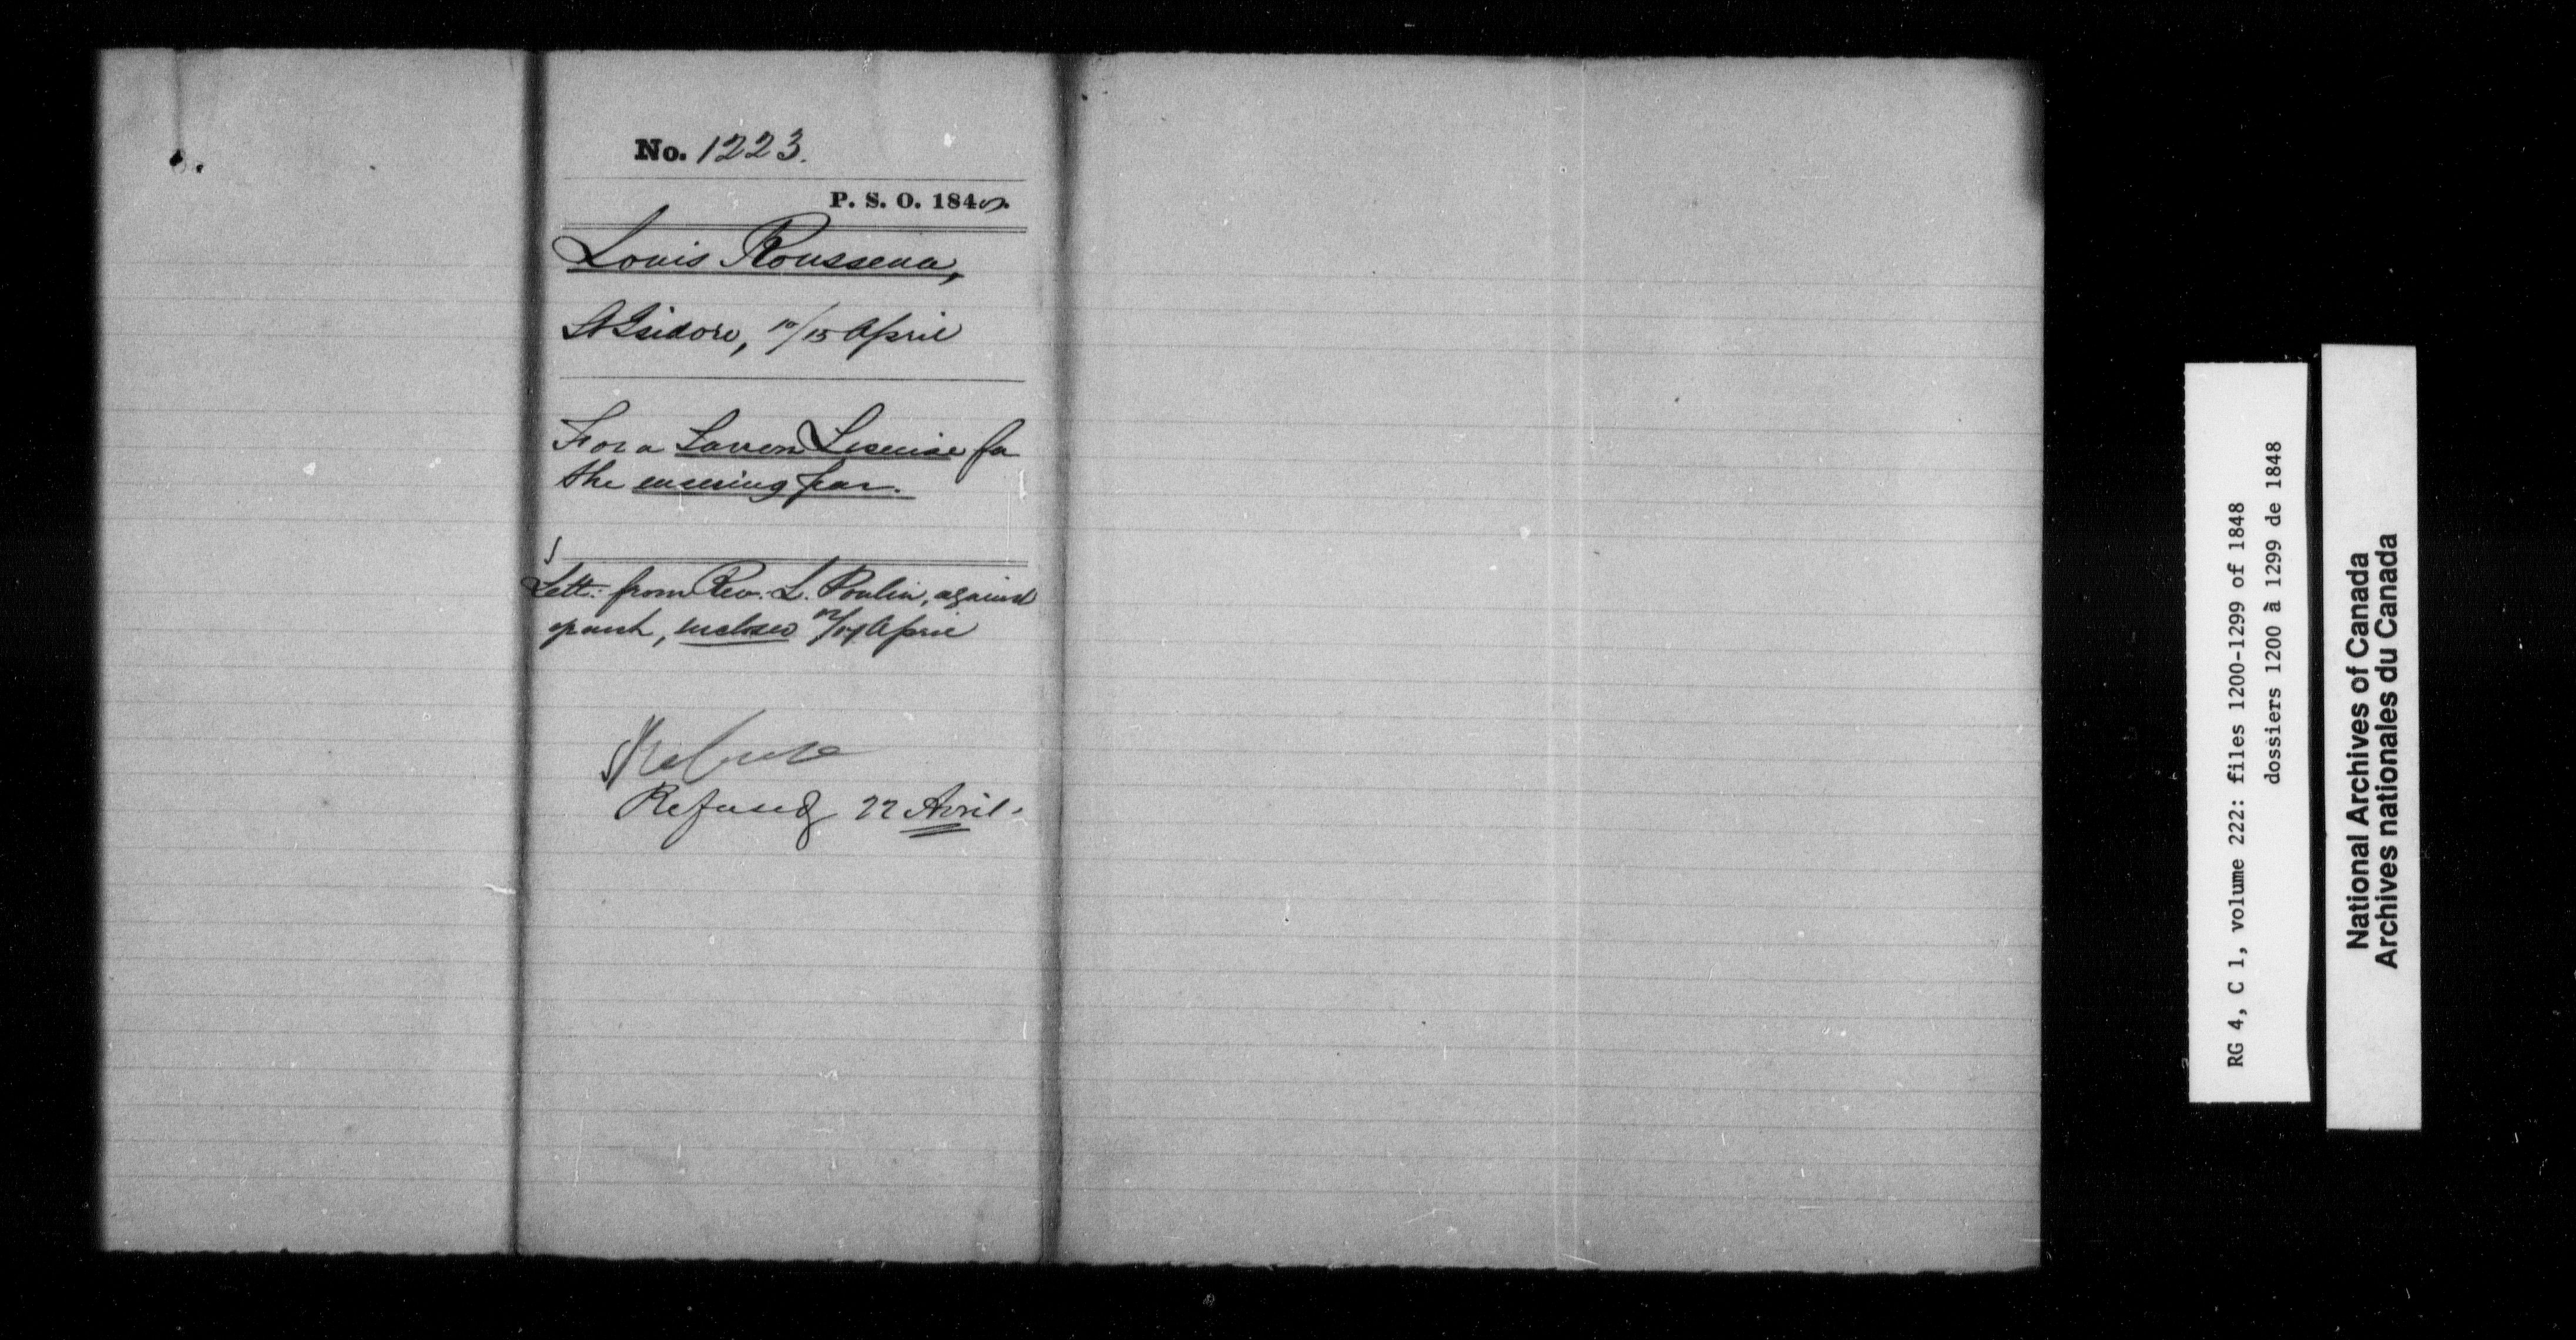 No. 1223.
P. S. O. 1848.
Louis Rousseau,
St Isidore, 10/15 April
For a Tavern License for
the ensuing year.
Lett: from Rev. L. Poulin, against
grant, enclosed April
Refuse
Refused 22 Avril.
RG 4, C 1, volume 222: files 1200-1299 of 1848
dossiers 1200 à 1299 de 1848
National Archives of Canada
Archives nationales du Canada